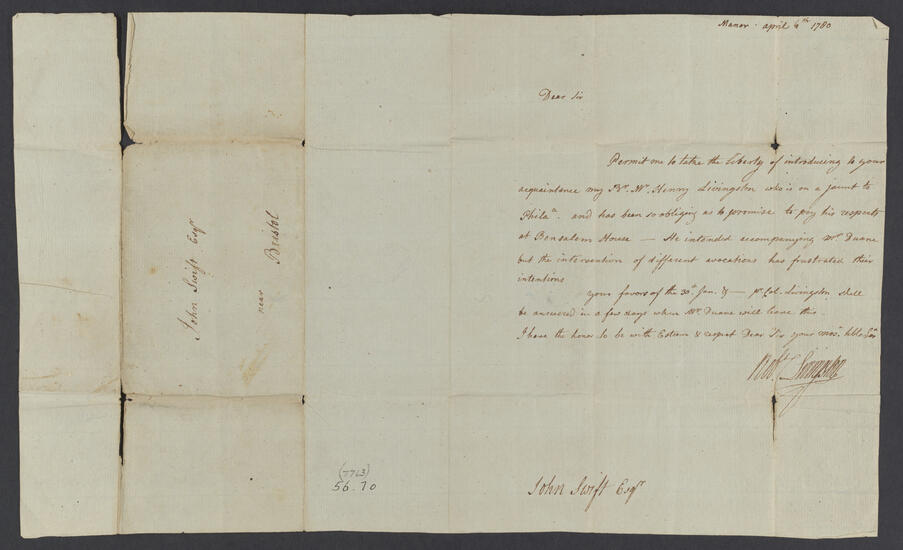 Manor. april 4th 1780
Dear Sir
Permit me to take the liberty of introducing to your
acquaintance my Br. Mr. Henry Livingston who is on a jaunt to
Phila. and has been so obliging as to promise to pay his respects
at Bensalem House — He intended accompanying Mr. Duane
but the intervention of different avocations has frustrated their
intentions
your favors of the 30th Jan. & — pr. Col. Livingston shall
be answered in a few days when Mr. Duane will leave this.
I have the honor to be with Esteem & respect Dear Sir your mos. hble Ser
Robt. Livingston
John Swift Esqr
John Swift Esqr
near
Bristol
(7763)
56.70